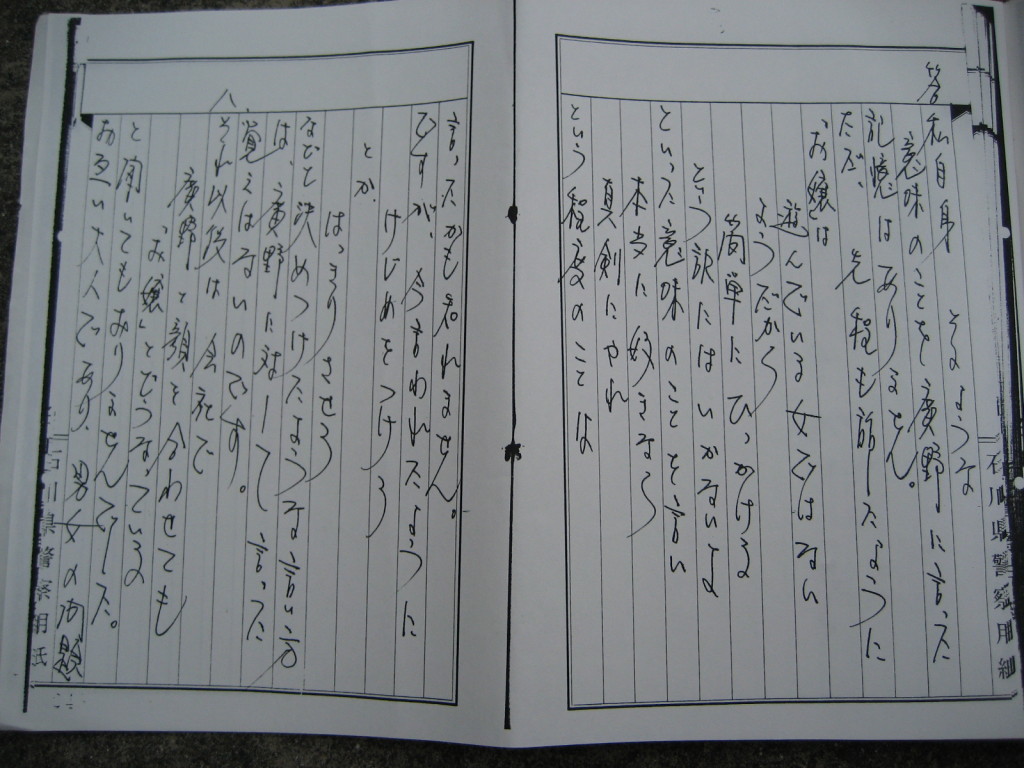 答
私自身 そのような
意味のことを廣野に言った
記憶はありません。
ただ、先程も話したように
お嬢は
遊んでいる女ではない
ようだから
簡単にひっかける
という訳にはいかないよ
といった意味のことを言い
本当に好きなら
真剣にやれ
という程度のことは
石川県警察用紙
言ったかも知れません。
ですが、今言われたように
けじめをつけろ
とか
はっきりさせろ
などと決めつけたような言い方
は、廣野に対して言った
覚えはないのです。
八、それ以後は会社で
廣野と顔を合わせても
「お嬢」とどうなっているの
と聞いてもおりませんでした。
お互い大人であり、男女の問題
石川県警察用紙